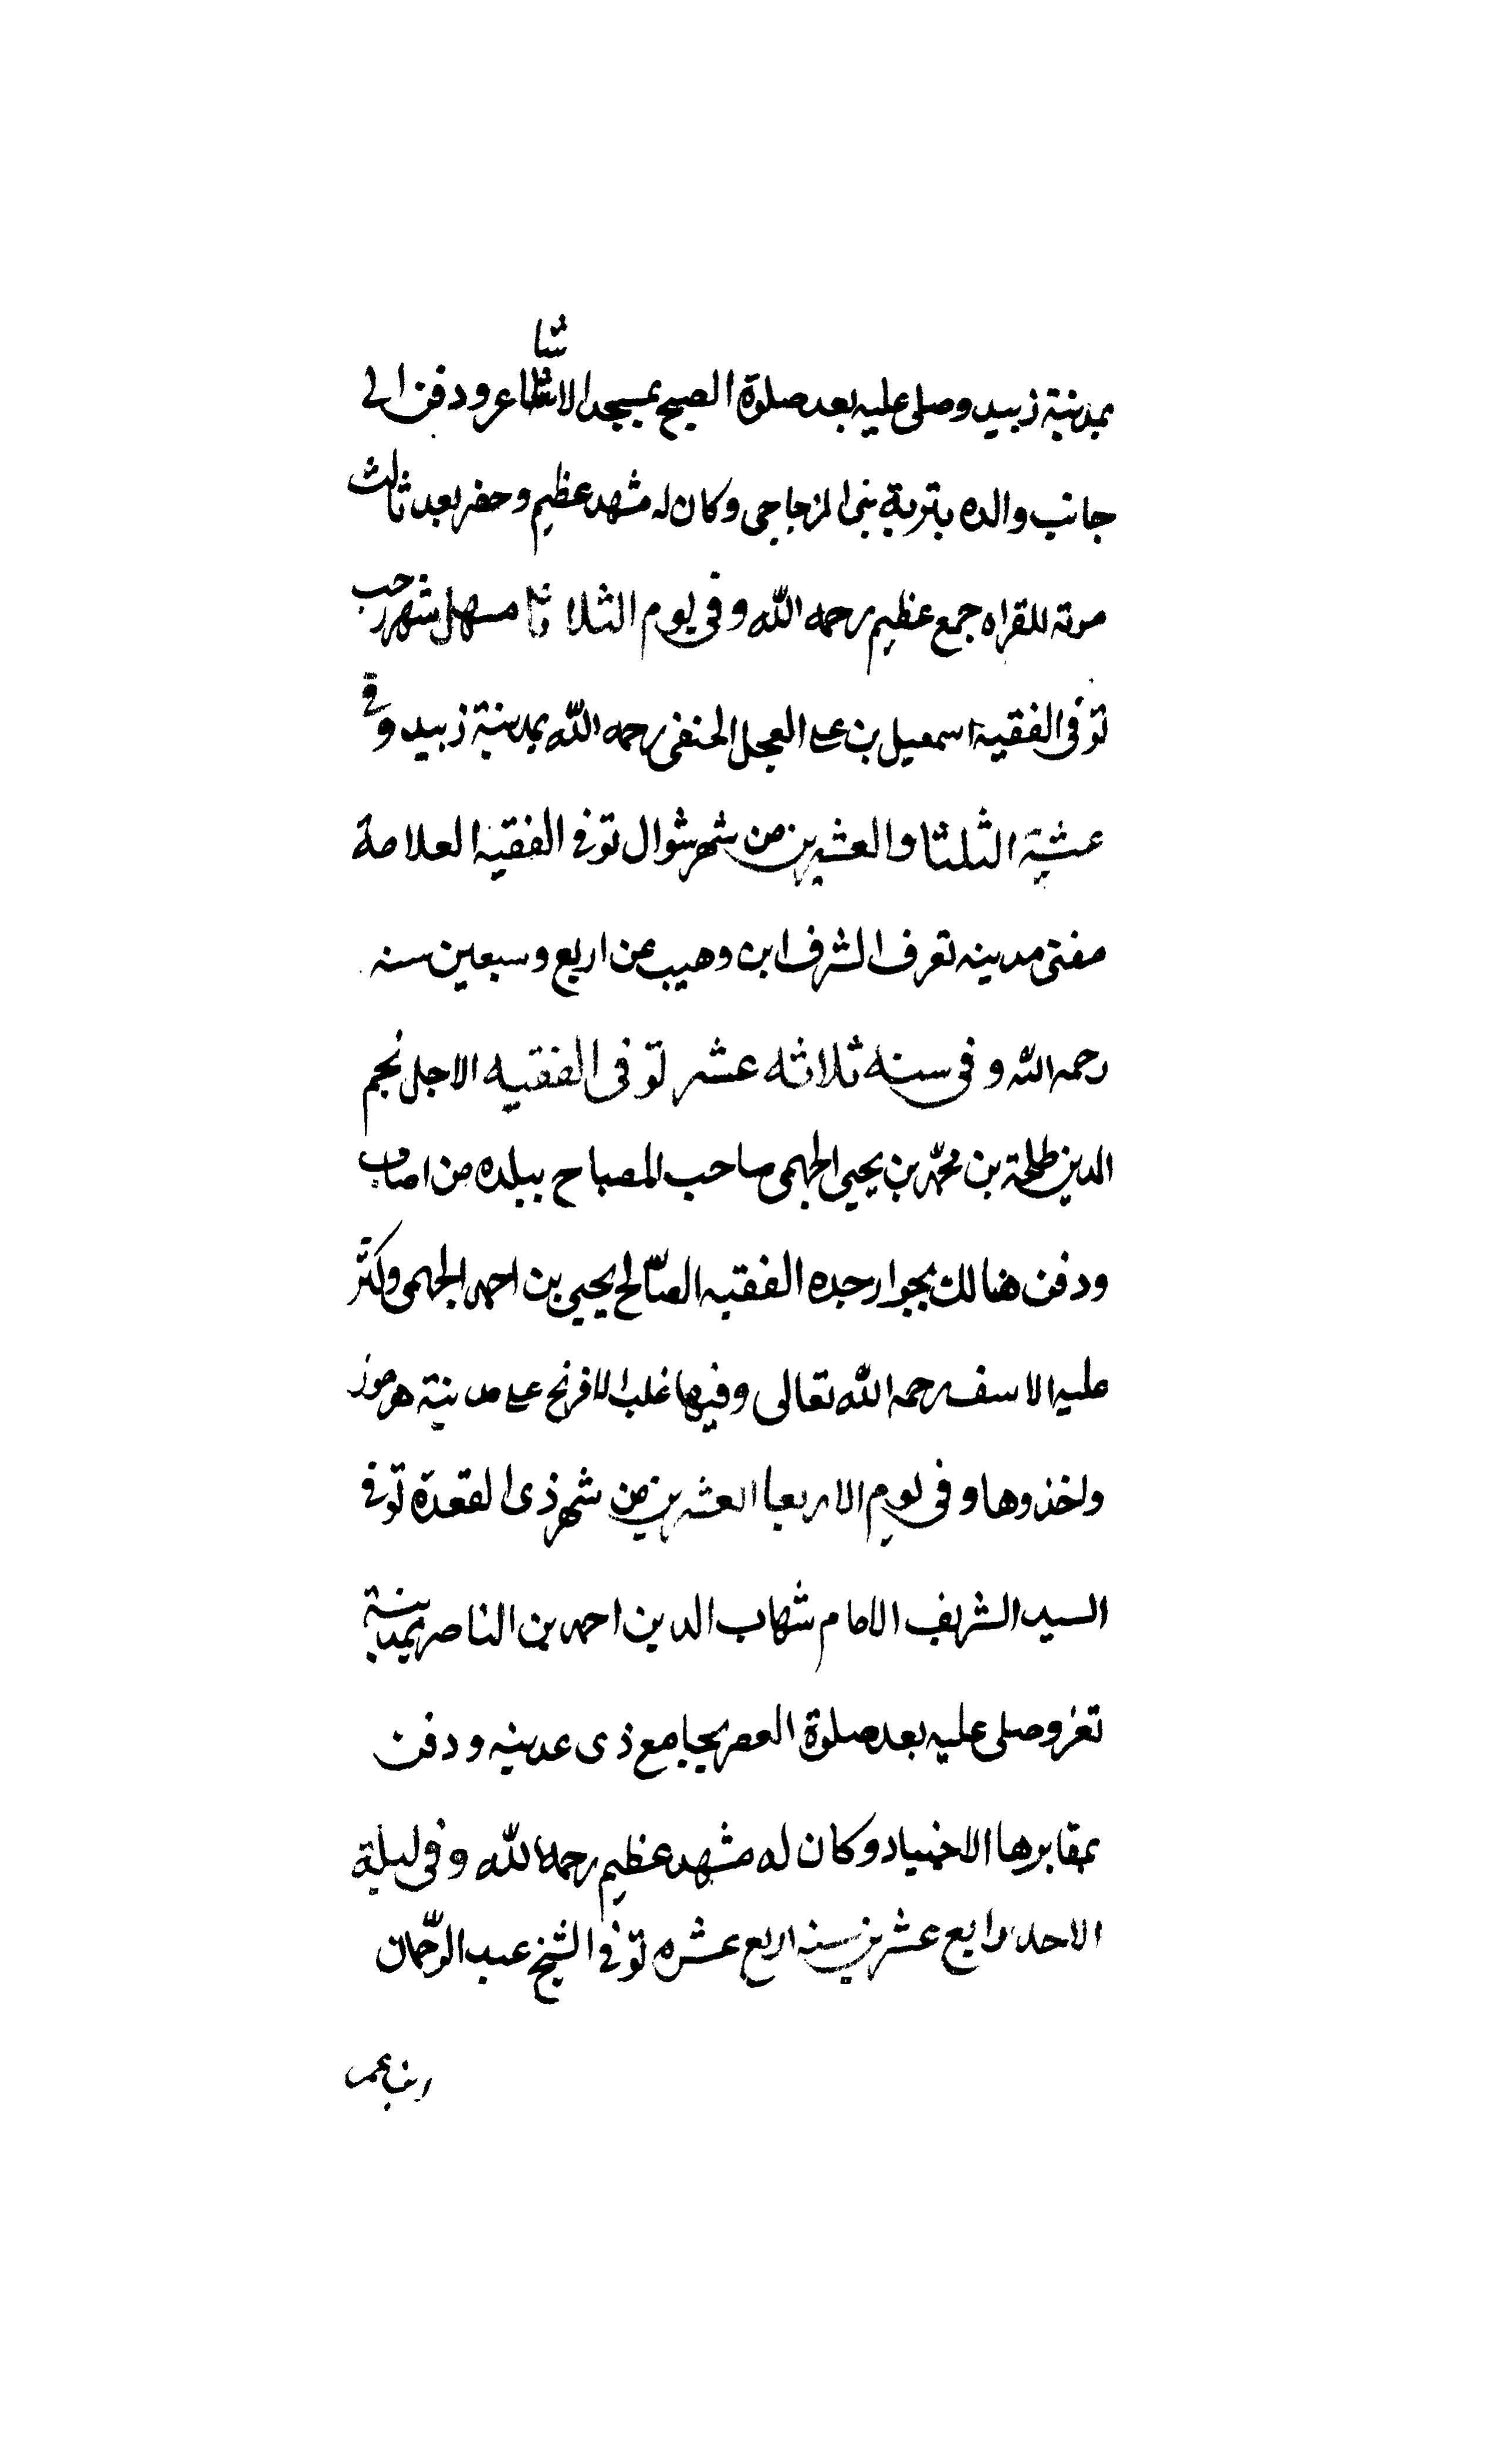 شا
بمدينة زبيد وصلى عليه بعد صلوة الصبح بمسجد الاشاعر ودفن الى
جانب والده بتربة بنى المزجاجى وكان له مشهد عظيم وحضر بعد ثالث
موته للقراه جمع عظيم رحمه الله وفى يوم الثلاثا مستهل شهر رجب
توفى الفقيه اسمعيل بن على العجل الحنفى رحمه الله بمدينة زبيد وفى
عشية الثلثا والعشرين من شهر شوال توفى الفقيه العلامة
مفتى مدينه تعز ف الشرف ابن وهيب عن اربع وسبعين سنه
رحمه الله وفى سنه ثلاثه عشر توفى الفقيه الاجل نجم
الدين طلحة بن محمد بن يحيى الجهمى صاحب المصباح ببلده من اصاب
ودفن هنالك بجوار جده الفقيه الصالح يحيى بن احمد الجهمى وكثر
عليه الاسف رحمه الله تعالى وفيها غلب الافرنج على مدينة هرموز
واخذوها وفى يوم الاربعا العشرين من شهر ذى القعدة توفى
السيد الشريف الامام شهاب الدين احمد بن الناصر بمدينة
تعز وصلى عليه بعد صلوة العصر بجامع ذى عدينه ودفن
بمقابرها الاجيناد وكان له مشهد عظيم رحمه الله وفى ليلة
الاحد رابع عشرين سنه اربع عشره توفى الشيخ عبد الرحمان
ابن عمر